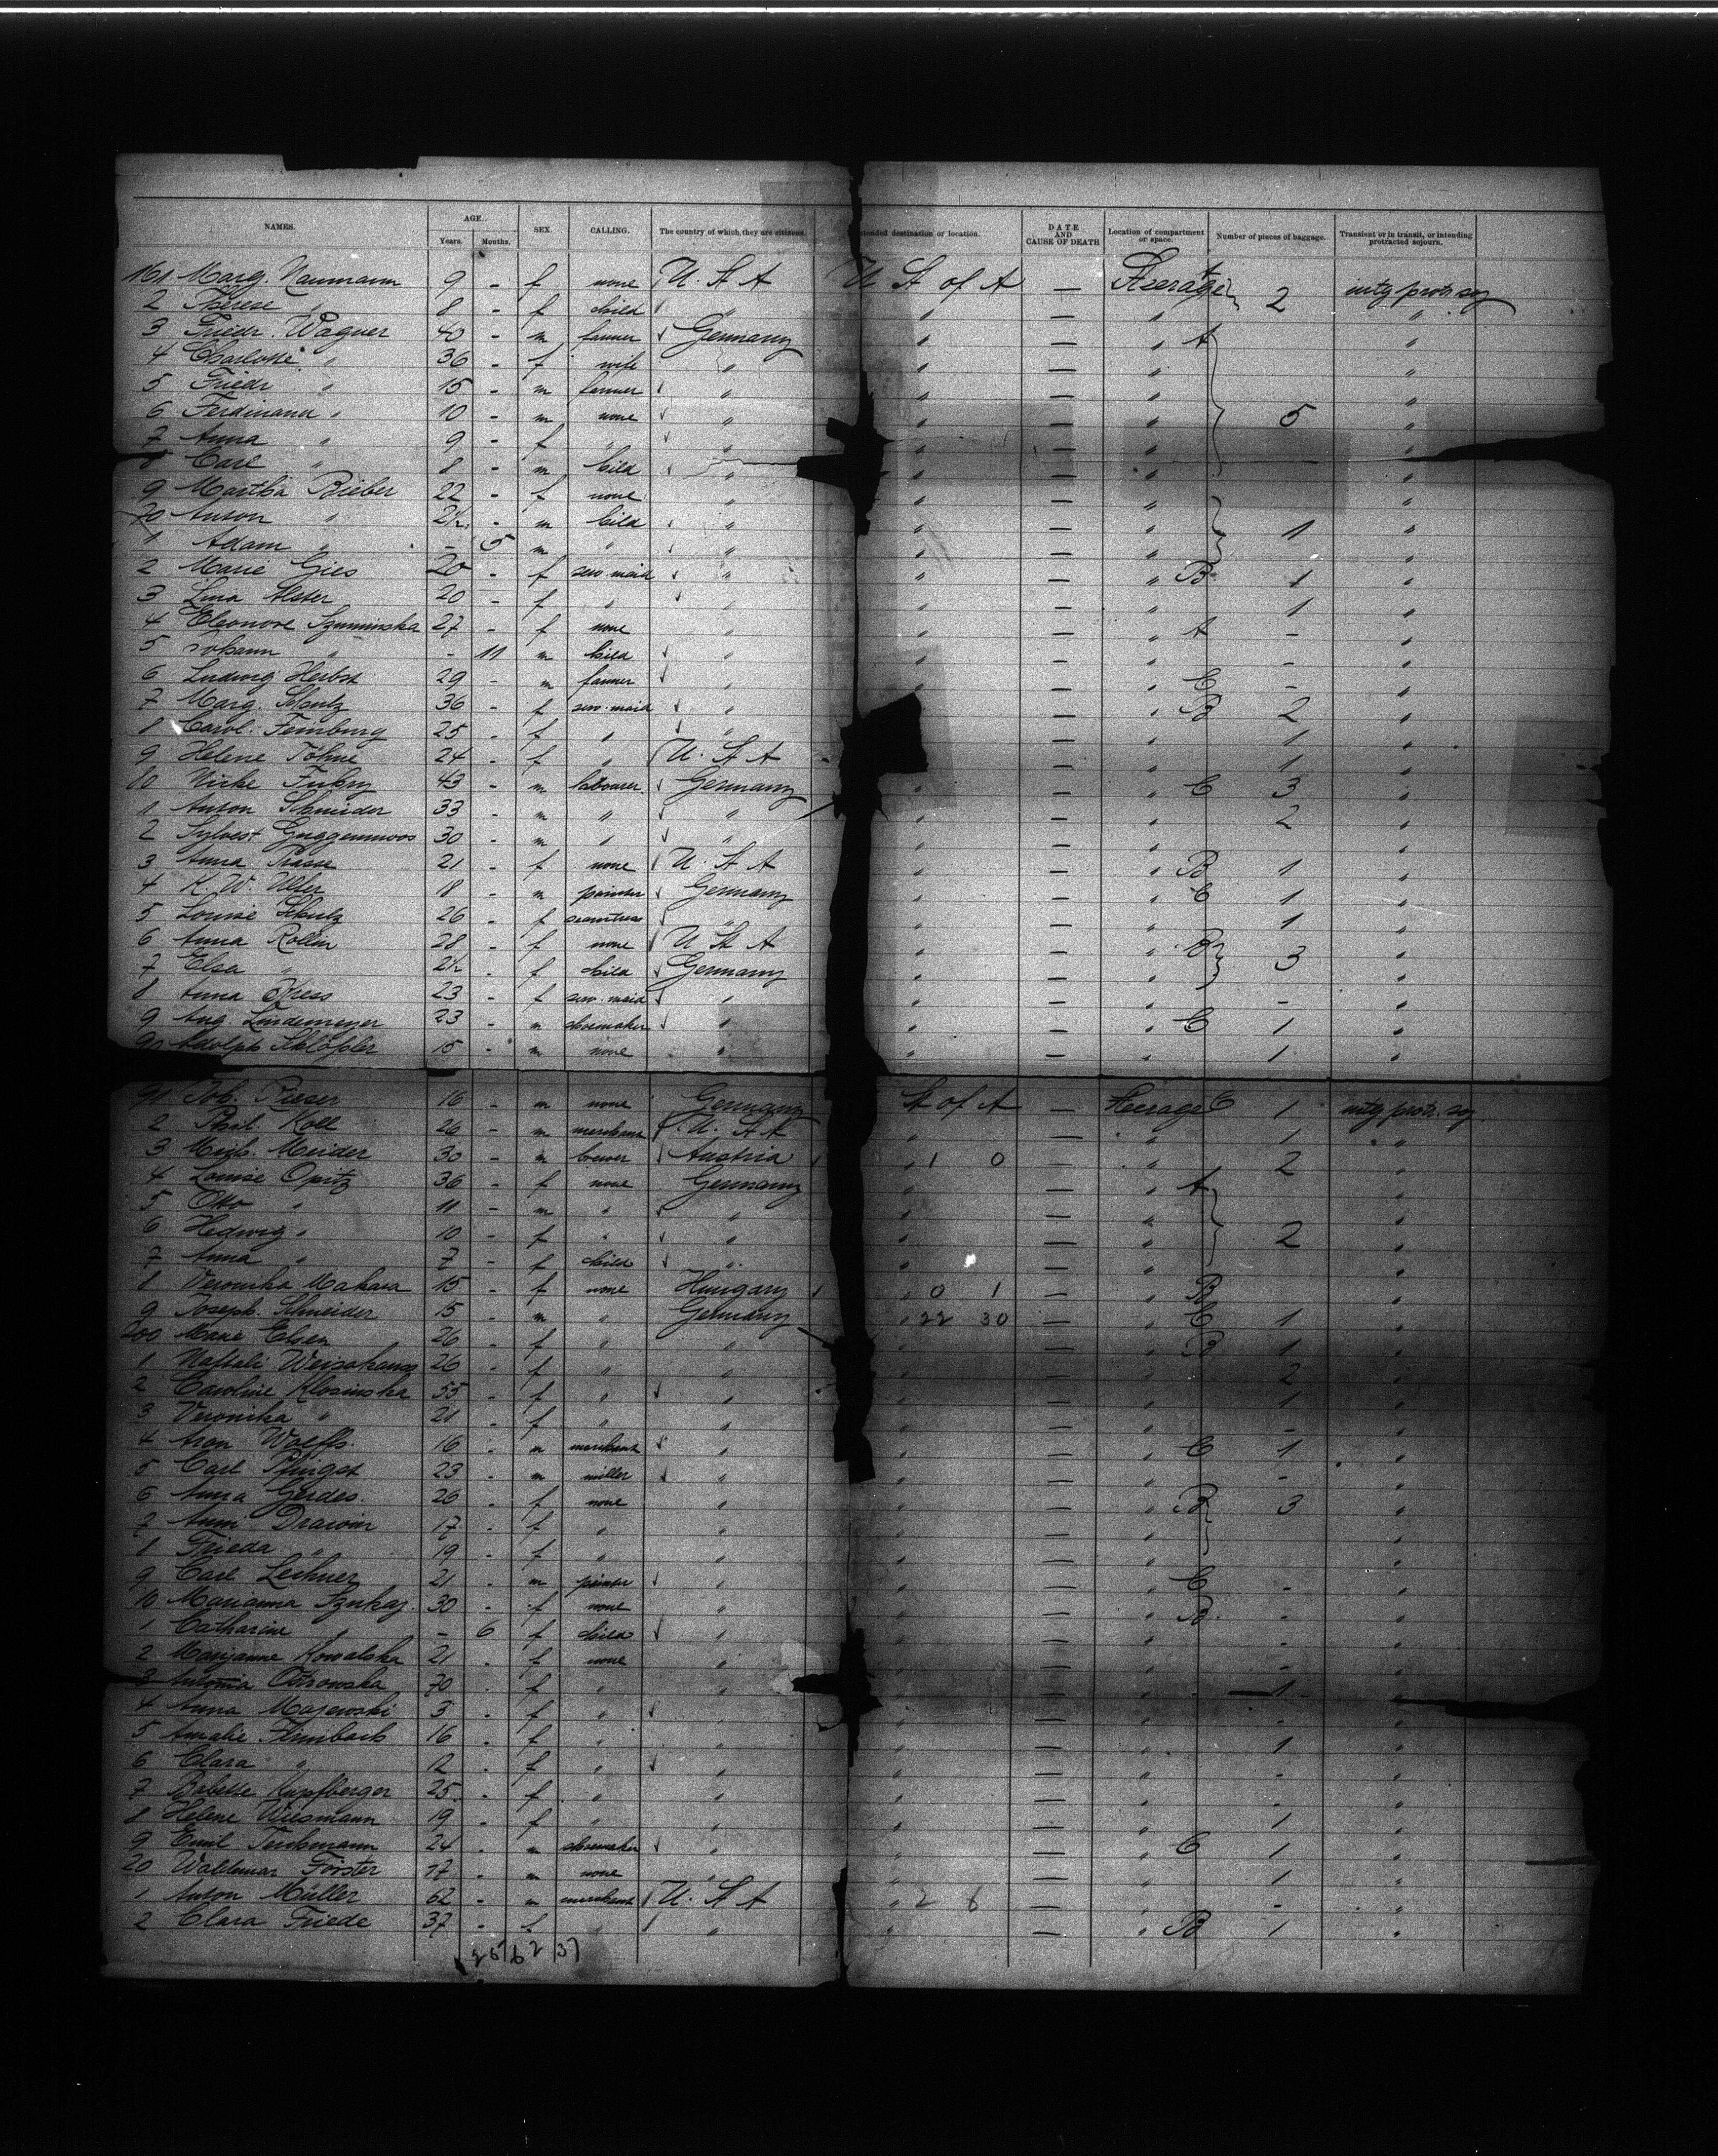 NAMES. AGE. Years. Months. SEX. CALLING. The country of which they are citizens. tended destination or location. DATE AND CAUSE OF DEATH Location of compartment or space. Number of pieces of baggage. Transient or in transit, or intending protracted sojourn.
161 Marg. Naumann 9 - f none U. S t A U S t of A — Steerage A 2 intg protr. soj
2 Therese " 8 - f child " " — " "
3 Friedr. Wagner 40 - m farmer Germany " — " A "
4 Charlotte " 36 - f wife " " — " "
5 Friedr " 15 - m farmer " " — " "
6 Ferdinand " 10 - m none " " — " 5 "
7 Anna " 9 - f " " " — " "
8 Carl " 8 - m child " " — " "
9 Martha Bieber 22 - f none " " — " "
70 Anton " 2½ - m child " " — " 1 "
1 Adam " - 5 m " " " — " "
2 Marie Gies 20 - f serv. maid " " — " B 1 "
3 Lina Alster 20 - f " " " — " 1 "
4 Eleonore Szuminska 27 - f none " " — " A - "
5 Johann " - 11 m child " " — " - "
6 Ludwig Herbst 29 - m farmer " " — " C - "
7 Marg. Schulz 36 - f serv. maid " " — " B 2 "
8 Carol. Feinburg 25 - f " " — " 1 "
9 Helene Töhne 24 - f " U. S t A — " 1 "
80 43 - m labourer Germany " — " C 3 "
1 Anton Schneider 33 - m " " " — " 2 "
2 Sylvest Guggenmoos 30 - m " " " — " "
3 Anna 21 - f none U. S t A " — " B 1 "
4 K. W. 18 - m Germany " — " C 1 "
5 Louise Schulz 26 - f seamstress " " — " 1 "
6 Anna Rollin 28 - f none U S t A " — " B 3 "
7 Elsa " 2½ - f child Germany " — " "
8 Anna Kress 23 - f serv. maid " " — " - "
9 Aug. Lindemeyer 23 - m shoemaker " " — " C 1 "
90 Adolph 15 - m none " " — " 1 "
91 Joh. Rieser 16 - m none Germany S t of A — Steerage C 1 intg protr. soj
2 Phil. Koll 26 - m merchant U. S t A " — " 1 "
3 Mich. Meider 30 - m brewer Austria " 1 0 — " 2 "
4 Louise Opitz 36 - f none Germany " — " A "
5 Otto " 11 - m " " " — " "
6 Hedwig " 10 - f " " " — " 2 "
7 Anna " 7 - f child " " — " "
8 Veronika Makara 15 - f none Hungary " 0 1 — " B "
9 Joseph Schneider 15 - m " Germany " 22 30 — " C 1 "
200 Marie Elsen 26 - f " " " — " B 1 "
1 Naftali 26 - f " " " — " 2 "
2 Caroline Klosinska 55 - f " " " — " 1 "
3 Veronika " 21 - f " " " — " - "
4 Aron Wolffs. 16 - m merchant " " — " C 1 "
5 Carl Pfingst 23 - m miller " " — " - "
6 Anna Gerdes. 26 - f none " " — " B 3 "
7 Anni Drawin 17 - f " " " — " "
8 Frieda " 19 - f " " " — " "
9 Carl Lechner 21 - m " " — " C - "
10 Marianna 30 - f none " " — " B - "
1 Catharine " - 6 f child " " — " - "
2 Marijanne Kowalska 21 - f none " " — " - "
3 Antonia Ostrowska 70 - f " " " — " 1 "
4 Anna Majewski 3 - f " " " — " - "
5 Amalie 16 - f " " " — " 1 "
6 Clara " 12 - f " " " — " - "
7 Babette Kupfberger 25 - f " " " — " - "
8 Helene Wiesmann 19 - f " " " — " 1 "
9 Emil 24 - m shoemaker " " — " C 1 "
20 Waldemar Förster 17 - m none " " — " 1 "
1 Anton Müller 62 - m merchant U. S t A " 2 6 — " - "
2 Clara Friede 37 - f " " — " B 1 "